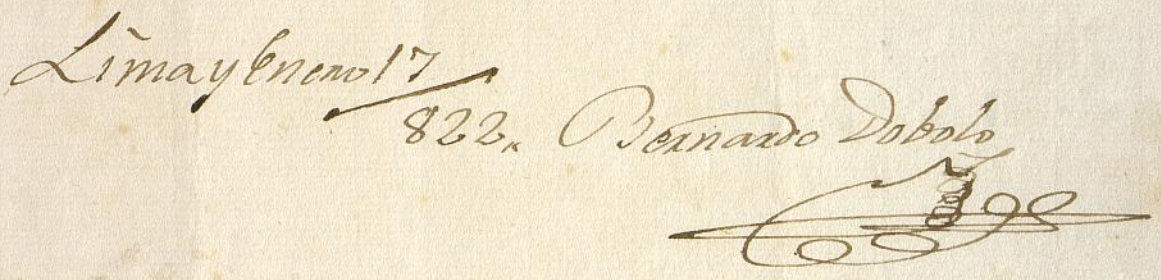 Lima y Enero 17/
822„ Bernardo Dobolo